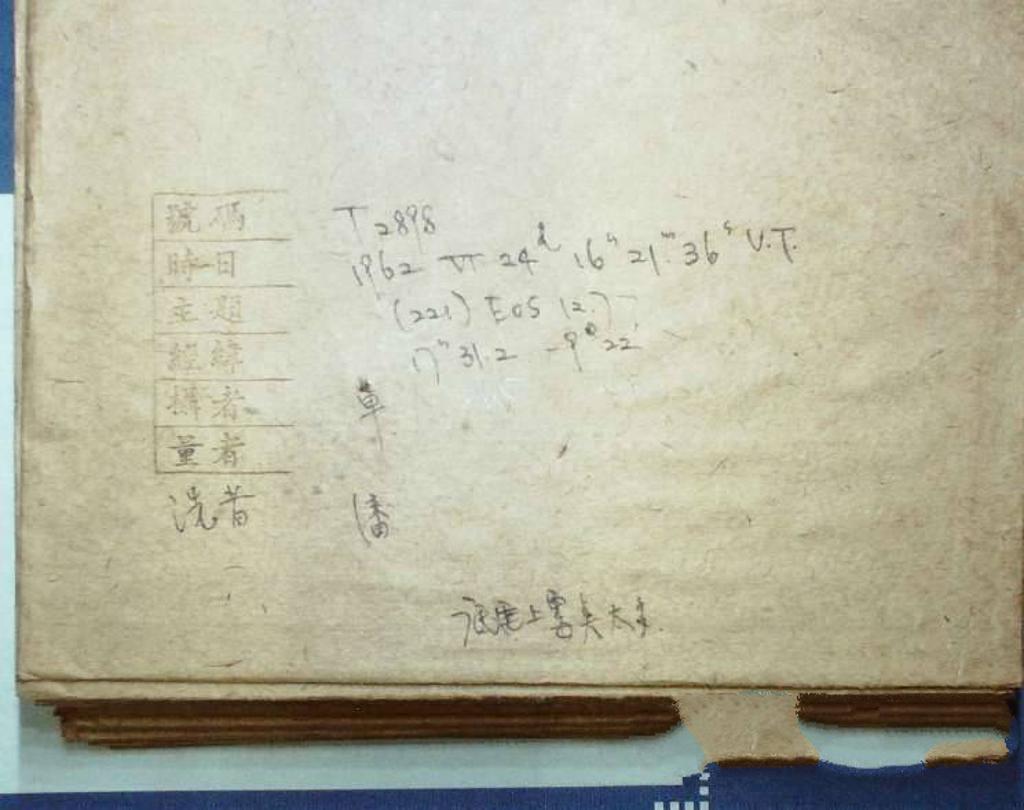 號碼 T 2898
時日 1962 VI 24ᵈ 16ʰ 21ᵐ 36ˢ U.T.
主題 (221) EOS 12.7
經緯 17ʰ 31.2 -9° 22'
攝者
量者
洗者 潘
底片上雾点太多.